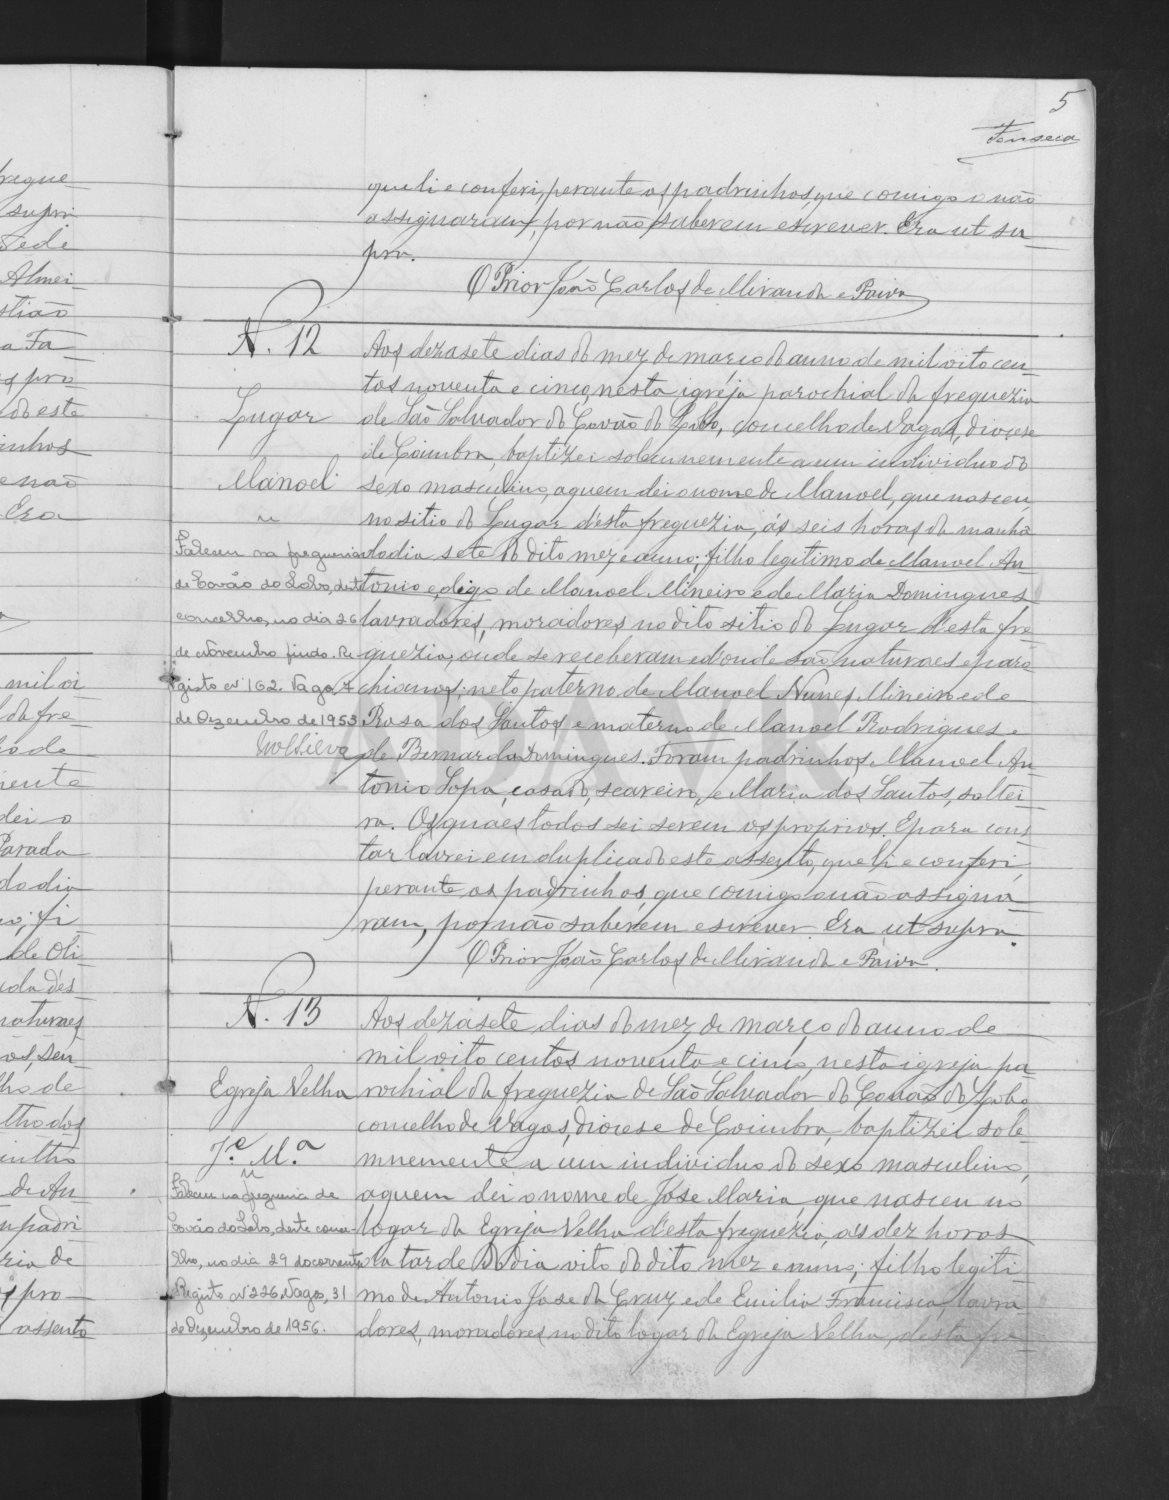 5
Fonseca
que li e conferi, perante os padrinhos, que comigo o não
assignaram, por não saberem escrever. Era ut su-
pra.
O Prior João Carlos de Miranda e Paiva
N. 12
Lugar
Manoel
Faleceu na freguesia
de Covão do Lobo, deste
concelho, no dia 26
de Novembro findo. Re-
gisto nº 162. Vagos, 4
de Dezembro de 1953
Aos dezasete dias do mez de março do anno de mil oito cen-
tos noventa e cinco, nesta igreja parochial da freguezia
de São Salvador do Covão do Lobo, concelho de Vagos, diocese
de Coimbra, baptizei solemnemente a um individuo do
sexo masculino, a quem dei o nome de Manoel, que nasceu
no sitio do Lugar d'esta freguezia, ás seis horas da manhã
do dia sete do dito mez e anno; filho legitimo de Manoel An-
tonio e, digo de Manoel Mineiro e de Maria Domingues
lavradores, moradores no dito sitio do Lugar d'esta fre-
guezia, onde se receberam e d'onde são naturaes e paro-
chianos; neto paterno de Manoel Nunes Mineiro e de
Rosa dos Santos e materno de Manoel Rodrigues e
de Bernarda Domingues. Foram padrinhos Manoel An-
tonio Lopa, casado, seareiro, e Maria dos Santos, soltei-
ra. Os quaes todos sei serem os proprios. E para cons-
tar lavrei em duplicado este assento, que li e conferi,
perante os padrinhos, que comigo o não assigna-
ram, por não saberem escrever. Era ut supra.
O Prior João Carlos de Miranda e Paiva.
N. 13
Egreja Velha
J.e M.a
Faleceu na freguesia de
Covão do Lobo, deste conce-
lho, no dia 29 do corrente
Registo nº 226. Vagos, 31
de Dezembro de 1956.
Aos dezasete dias do mez de março do anno de
mil oito centos noventa e cinco, nesta igreja pa-
rochial da freguezia de São Salvador do Covão do Lobo
concelho de Vagos, diocese de Coimbra, baptizei sole-
mnemente a um individuo do sexo masculino,
a quem dei o nome de José Maria, que nasceu no
logar da Egreja Velha d'esta freguezia, ás dez horas
da tarde do dia oito do dito mez e anno; filho legiti-
mo de Antonio José da Cruz e de Emilia Francisca, lavra-
dores, moradores no dito logar da Egreja Velha, desta fre-